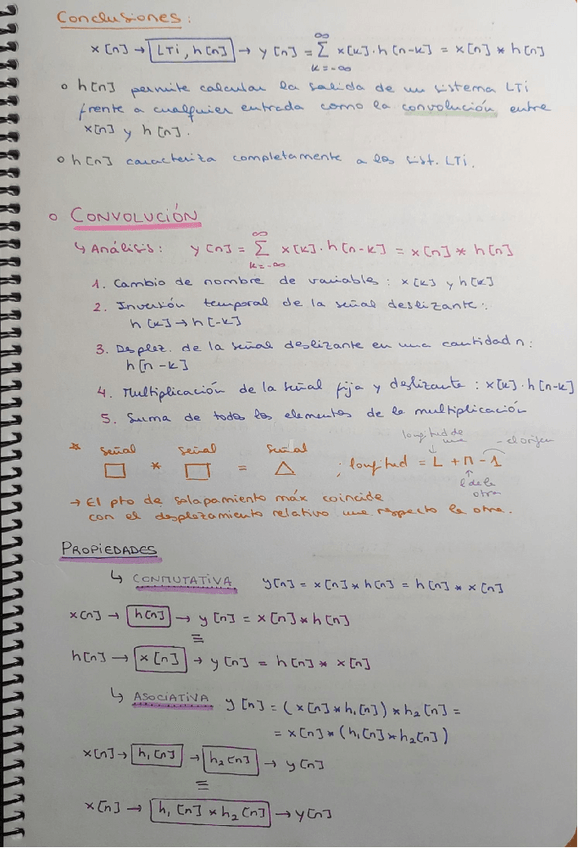 Conclusiones:
x[n] → LTi, h[n] → y[n] = ∞ Σ k=-∞ x[k]·h[n-k] = x[n] * h[n]
o h[n] permite calcular la salida de un sistema LTi
frente a cualquier entrada como la convolución entre
x[n] y h[n].
o h[n] caracteriza completamente a los sist. LTi.
o CONVOLUCIÓN
↳ Análisis: y[n] = ∞ Σ k=-∞ x[k]·h[n-k] = x[n] * h[n]
1. Cambio de nombre de variables: x[k] y h[k]
2. Inversión temporal de la señal deslizante:
h[k] → h[-k]
3. Desplaz. de la señal deslizante en una cantidad n:
h[n-k]
4. Multiplicación de la señal fija y deslizante: x[k]·h[n-k]
5. Suma de todos los elementos de la multiplicación
longitud de una
- el origen
* señal señal señal
□ * □ = △ ; longitud = L + M - 1
l de la otra
→ El pto de solapamiento máx coincide
con el desplazamiento relativo una respecto la otra.
PROPIEDADES
↳ CONMUTATIVA y[n] = x[n] * h[n] = h[n] * x[n]
x[n] → h[n] → y[n] = x[n] * h[n]
≡
h[n] → x[n] → y[n] = h[n] * x[n]
↳ ASOCIATIVA y[n] = (x[n] * h₁[n]) * h₂[n] =
= x[n] * (h₁[n] * h₂[n])
x[n] → h₁[n] → h₂[n] → y[n]
≡
x[n] → h₁[n] * h₂[n] → y[n]